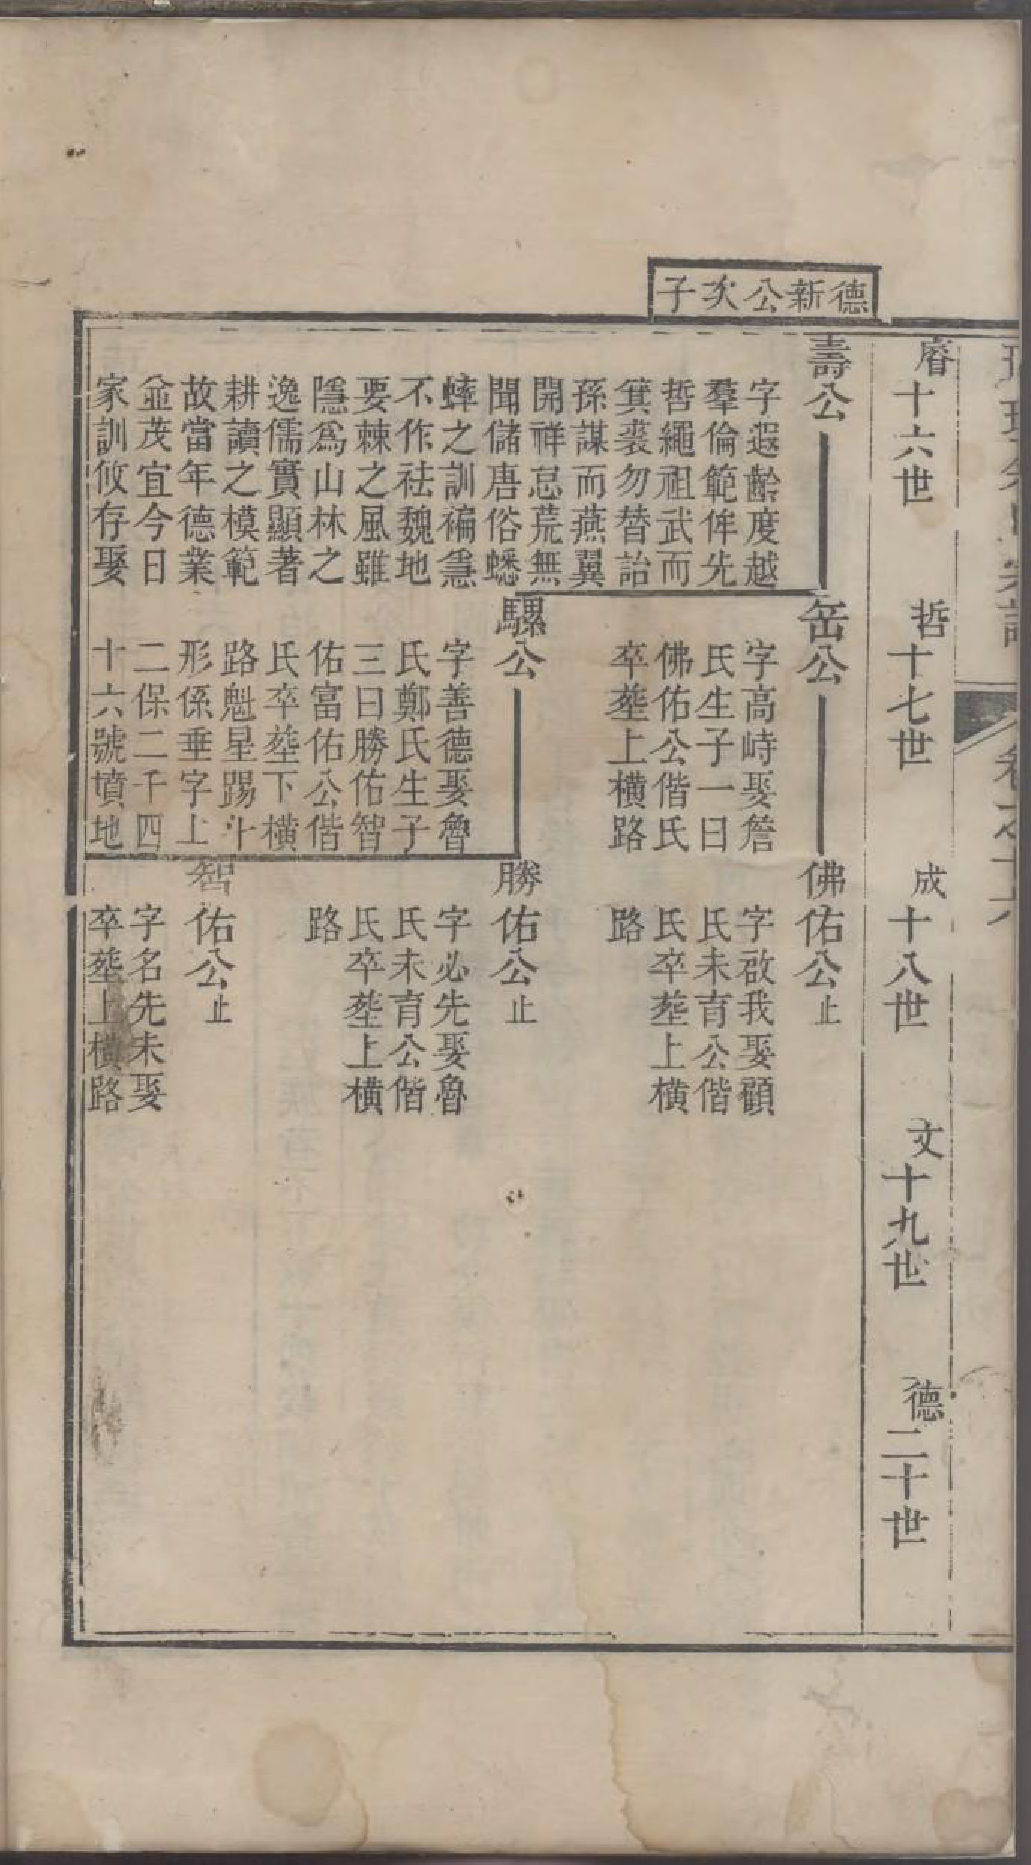 德新公次子
睿十六世
哲十七世
成十八世
文十九世
德二十世
壽公
字遐齡度越
羣倫範侔先
哲繩祖武而
箕裘勿替詒
孫謀而燕翼
開祥忌荒無
聞儲唐俗蟋
蟀之訓褊急
不作祛魏地
要棘之風雖
隱爲山林之
逸儒實顯著
耕讀之模範
故當年德業
並茂宜今日
家訓攸存娶
缶公
字高峙娶詹
氏生子一曰
佛佑公偕氏
卒塟上橫路
騾公
字善德娶魯
氏鄭氏生子
三曰勝佑智
佑富佑公偕
氏卒塟下橫
路魁星踢斗
形係垂字上
二保二千四
十六號墳地
佛佑公止
字啟我娶顧
氏未育公偕
氏卒塟上橫
路
勝佑公止
字必先娶魯
氏未育公偕
氏卒塟上橫
路
智佑公止
字名先未娶
卒塟上橫路